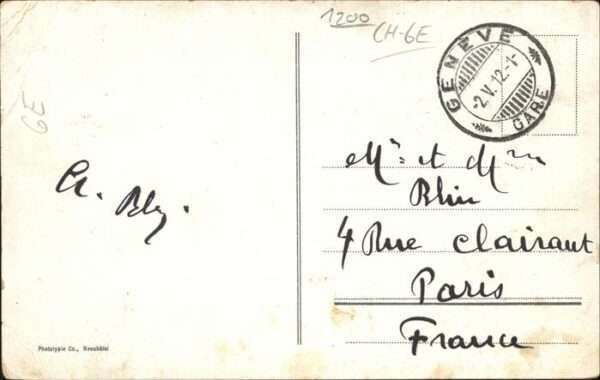 1200
CH-GE
GE
GENÈVE
-2.V.12.-1-
GARE
Mr et Mme
Blin
4 Rue Clairaut
Paris
France
Phototypie Co., Neuchâtel